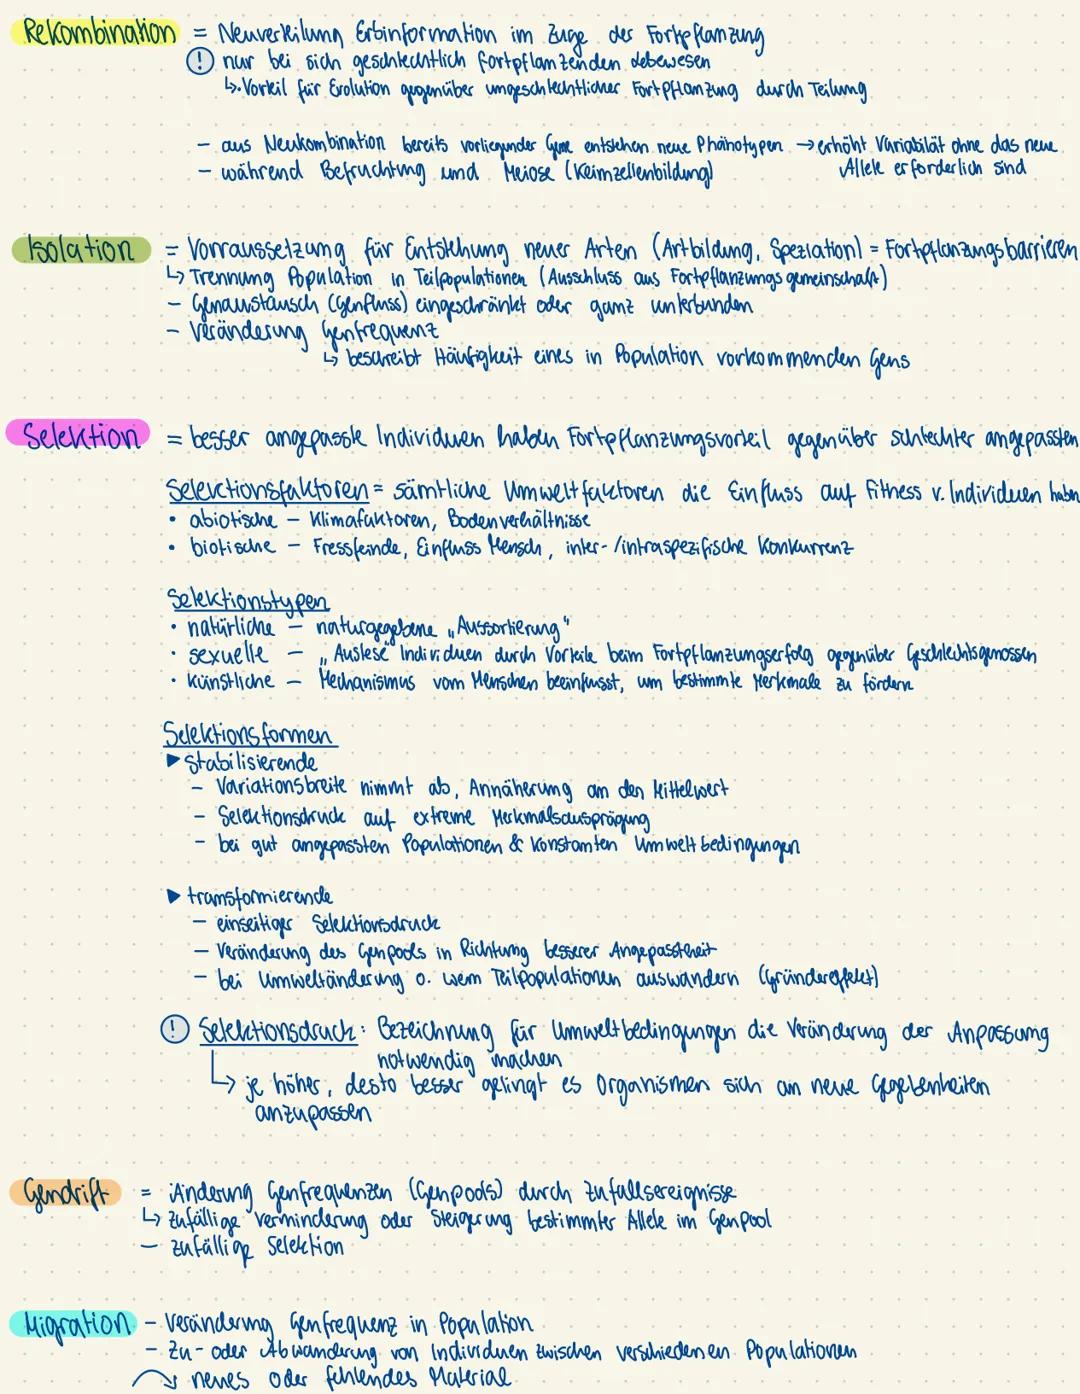 Rekombination = Neuverteilung Erbinformation im Zuge der Fortpflanzung
! nur bei sich geschlechtlich fortpflanzenden Lebewesen
↳ Vorteil für Evolution gegenüber ungeschlechtlicher Fortpflanzung durch Teilung
- aus Neukombination bereits vorliegender Gene entstehen neue Phänotypen → erhöht Variabilität ohne das neue
- während Befruchtung und Meiose (Keimzellenbildung) Allele erforderlich sind
Isolation = Vorraussetzung für Entstehung neuer Arten (Artbildung, Speziation) = Fortpflanzungsbarrieren
↳ Trennung Population in Teilpopulationen (Ausschluss aus Fortpflanzungsgemeinschaft)
- Genaustausch (Genfluss) eingeschränkt oder ganz unterbunden
- Veränderung Genfrequenz
↳ beschreibt Häufigkeit eines in Population vorkommenden Gens
Selektion = besser angepasste Individuen haben Fortpflanzungsvorteil gegenüber schlechter angepassten
Selektionsfaktoren = sämtliche Umweltfaktoren die Einfluss auf Fitness v. Individuen haben
• abiotische - Klimafaktoren, Bodenverhältnisse
• biotische - Fressfeinde, Einfluss Mensch, inter-/intraspezifische Konkurrenz
Selektionstypen
• natürliche - naturgegebene „Aussortierung"
• sexuelle - „Auslese" Individuen durch Vorteile beim Fortpflanzungserfolg gegenüber Geschlechtsgenossen
• künstliche - Mechanismus vom Menschen beeinflusst, um bestimmte Merkmale zu fördern
Selektionsformen
▶ stabilisierende
- Variationsbreite nimmt ab, Annäherung an den Mittelwert
- Selektionsdruck auf extreme Merkmalsausprägung
- bei gut angepassten Populationen & konstanten Umweltbedingungen
▶ transformierende
- einseitiger Selektionsdruck
- Veränderung des Genpools in Richtung besserer Angepasstheit
- bei Umweltänderung o. wenn Teilpopulationen auswandern (Gründereffekt)
! Selektionsdruck: Bezeichnung für Umweltbedingungen die Veränderung der Anpassung
notwendig machen
↳ je höher, desto besser gelingt es Organismen sich an neue Gegebenheiten
anzupassen
Gendrift = Änderung Genfrequenzen (Genpools) durch Zufallsereignisse
↳ zufällige Verminderung oder Steigerung bestimmter Allele im Genpool
- zufällige Selektion
Migration - Veränderung Genfrequenz in Population
- Zu- oder Abwanderung von Individuen zwischen verschiedenen Populationen
↷ neues oder fehlendes Material